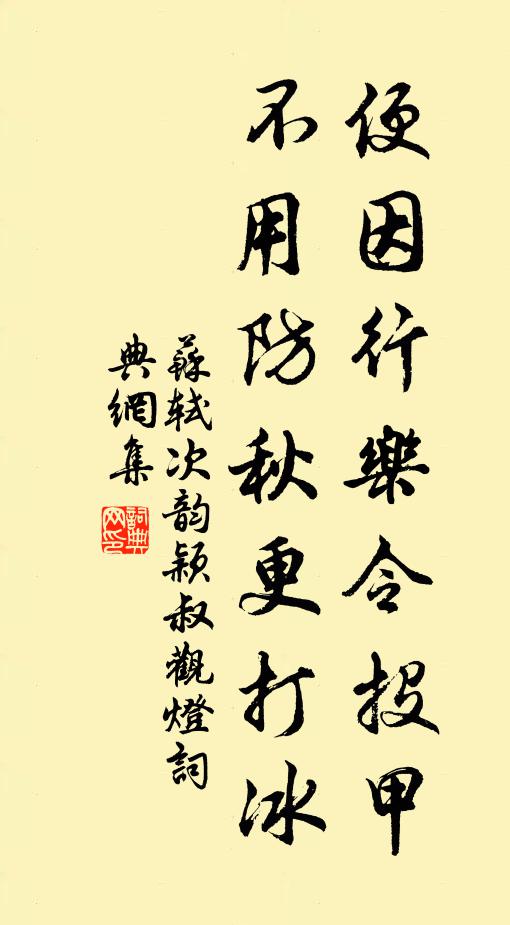 便因行樂令投甲
不用防秋更打冰
蘇軾次韵潁叔觀燈詞
典網集
詞典网印